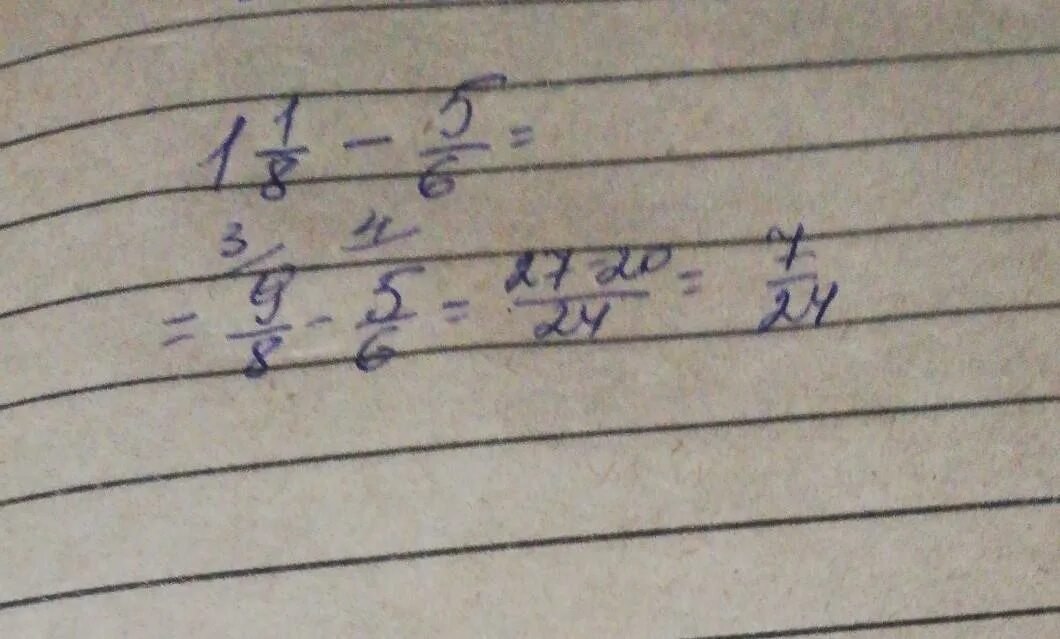 1 1/8 - 5/6 =
= 3/ 9/8 - 4/ 5/6 = 27-20/24 = 7/24